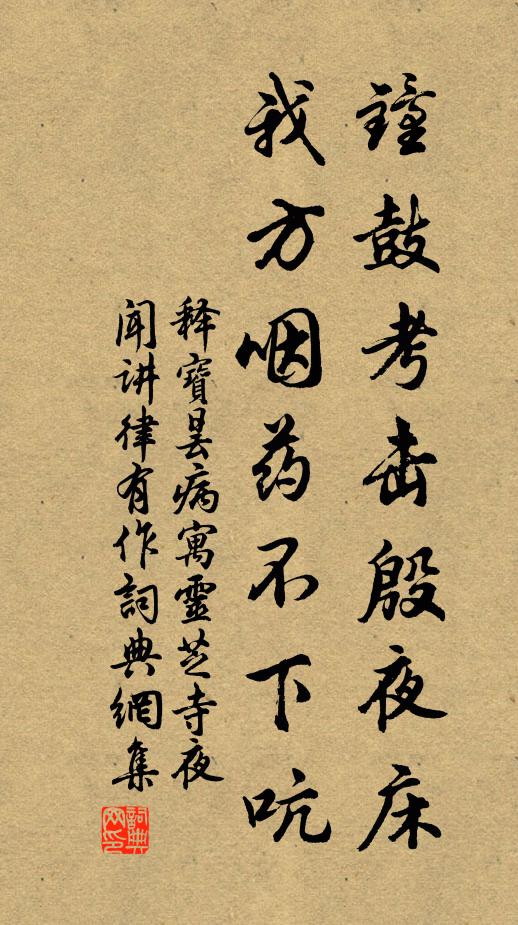 鐘鼓考击殷夜床
我方咽药不下吭
释寶昙病寓靈芝寺夜
闻讲律有作詞典網集
詞典網印